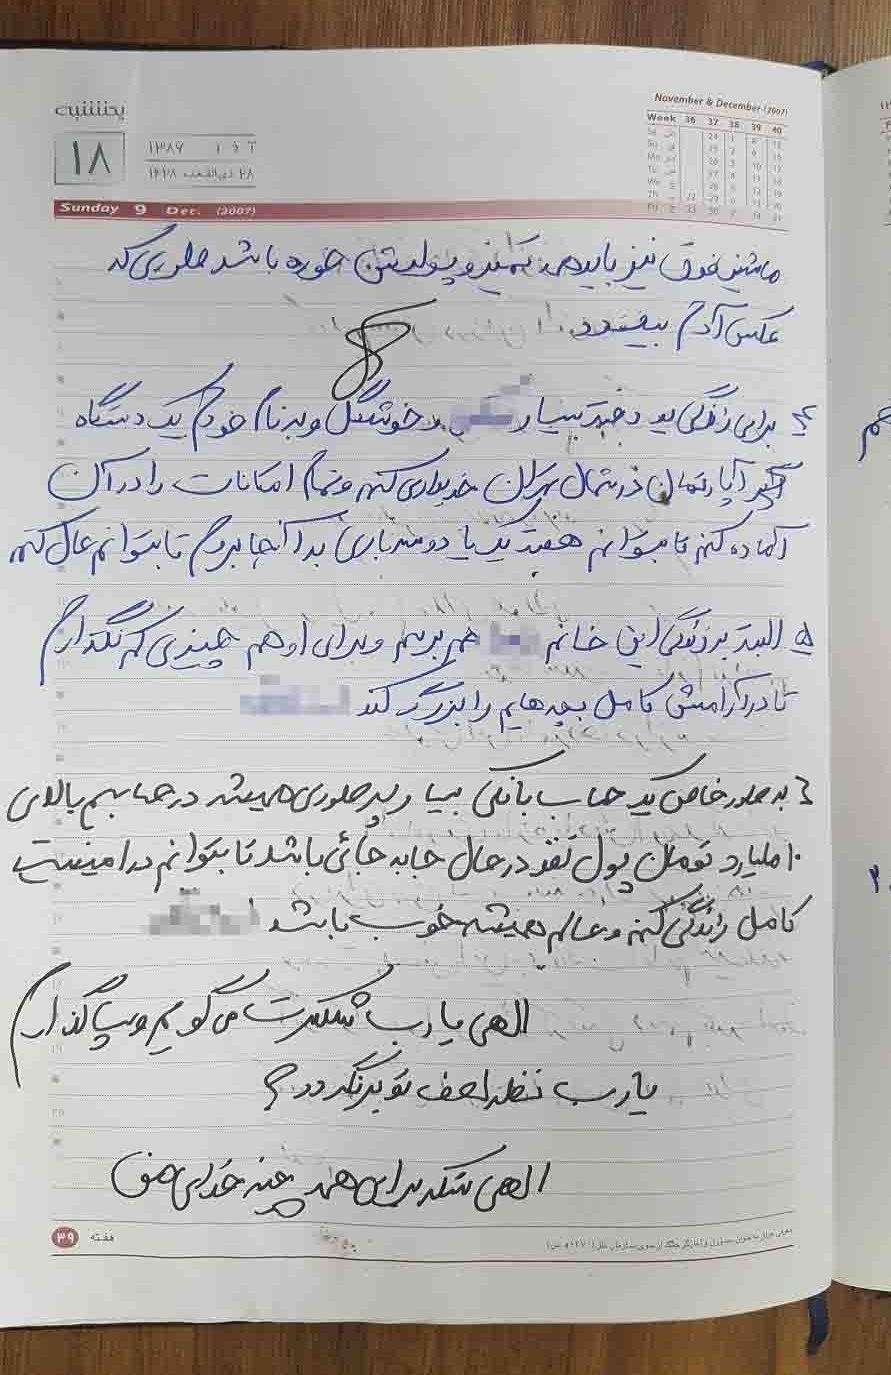 یکشنبه
۱۸
آذر ۱۳۸۶
۲۸ ذی‌القعده ۱۴۲۸
November & December (2007)
Week 36 37 38 39 40
Sunday 9 Dec. (2007)
ماشین فوق نیز باید همه تمیز و پولیش خورده باشد طوری که
عکس آدم بیفتد در
۴ برای زندگی یه دختر بسیار و خوشگل و به نام خودم یک دستگاه
آپارتمان در شمال تهران خریداری کنم و تمام امکانات را در آن
آماده کنم تا بتوانم هفته یک یا دو سه باری به آنجا بروم تا بتوانم حال کنم
۵ البته به زندگی این خانم هم برسم و برای او هم چیزی کم نگذارم
تا در آرامش کامل بچه هایم را بزرگ کند
۶ به طور خاص یک حساب بانکی بسازم به طوری همیشه در حسابم بالای
۱۰ ملیارد تومان پول نقد در حال جابه جائی باشد تا بتوانم در امنیت
کامل زندگی کنم و حالم همیشه خوب باشد
الهی یا رب شکرت می گویم و سپاگذارم
یا رب نظر لطف تو برنگردد؟
الهی شکر برای همه چیز خدای من
هفته ۳۹